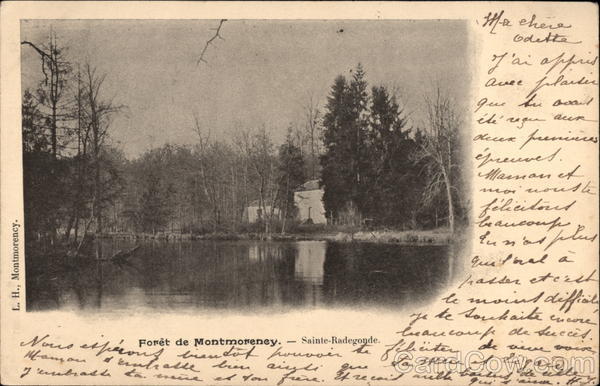 Ma chère
Odette
J'ai appris
avec plaisir
que tu avais
été reçu aux
deux premières
épreuves.
Maman et
moi nous te
félicitons
beaucoup
Tu n'as plus
que l'oral à
passer et c'est
le moins difficile
je te souhaite encore
beaucoup de succès.
L. H., Montmorency.
Forêt de Montmorency. — Sainte-Radegonde.
Nous espérons bientôt pouvoir te féliciter de vive voix
Maman t'embrasse bien ainsi que
J'embrasse ta mère et ton frère. Et reçois
CardCow.com